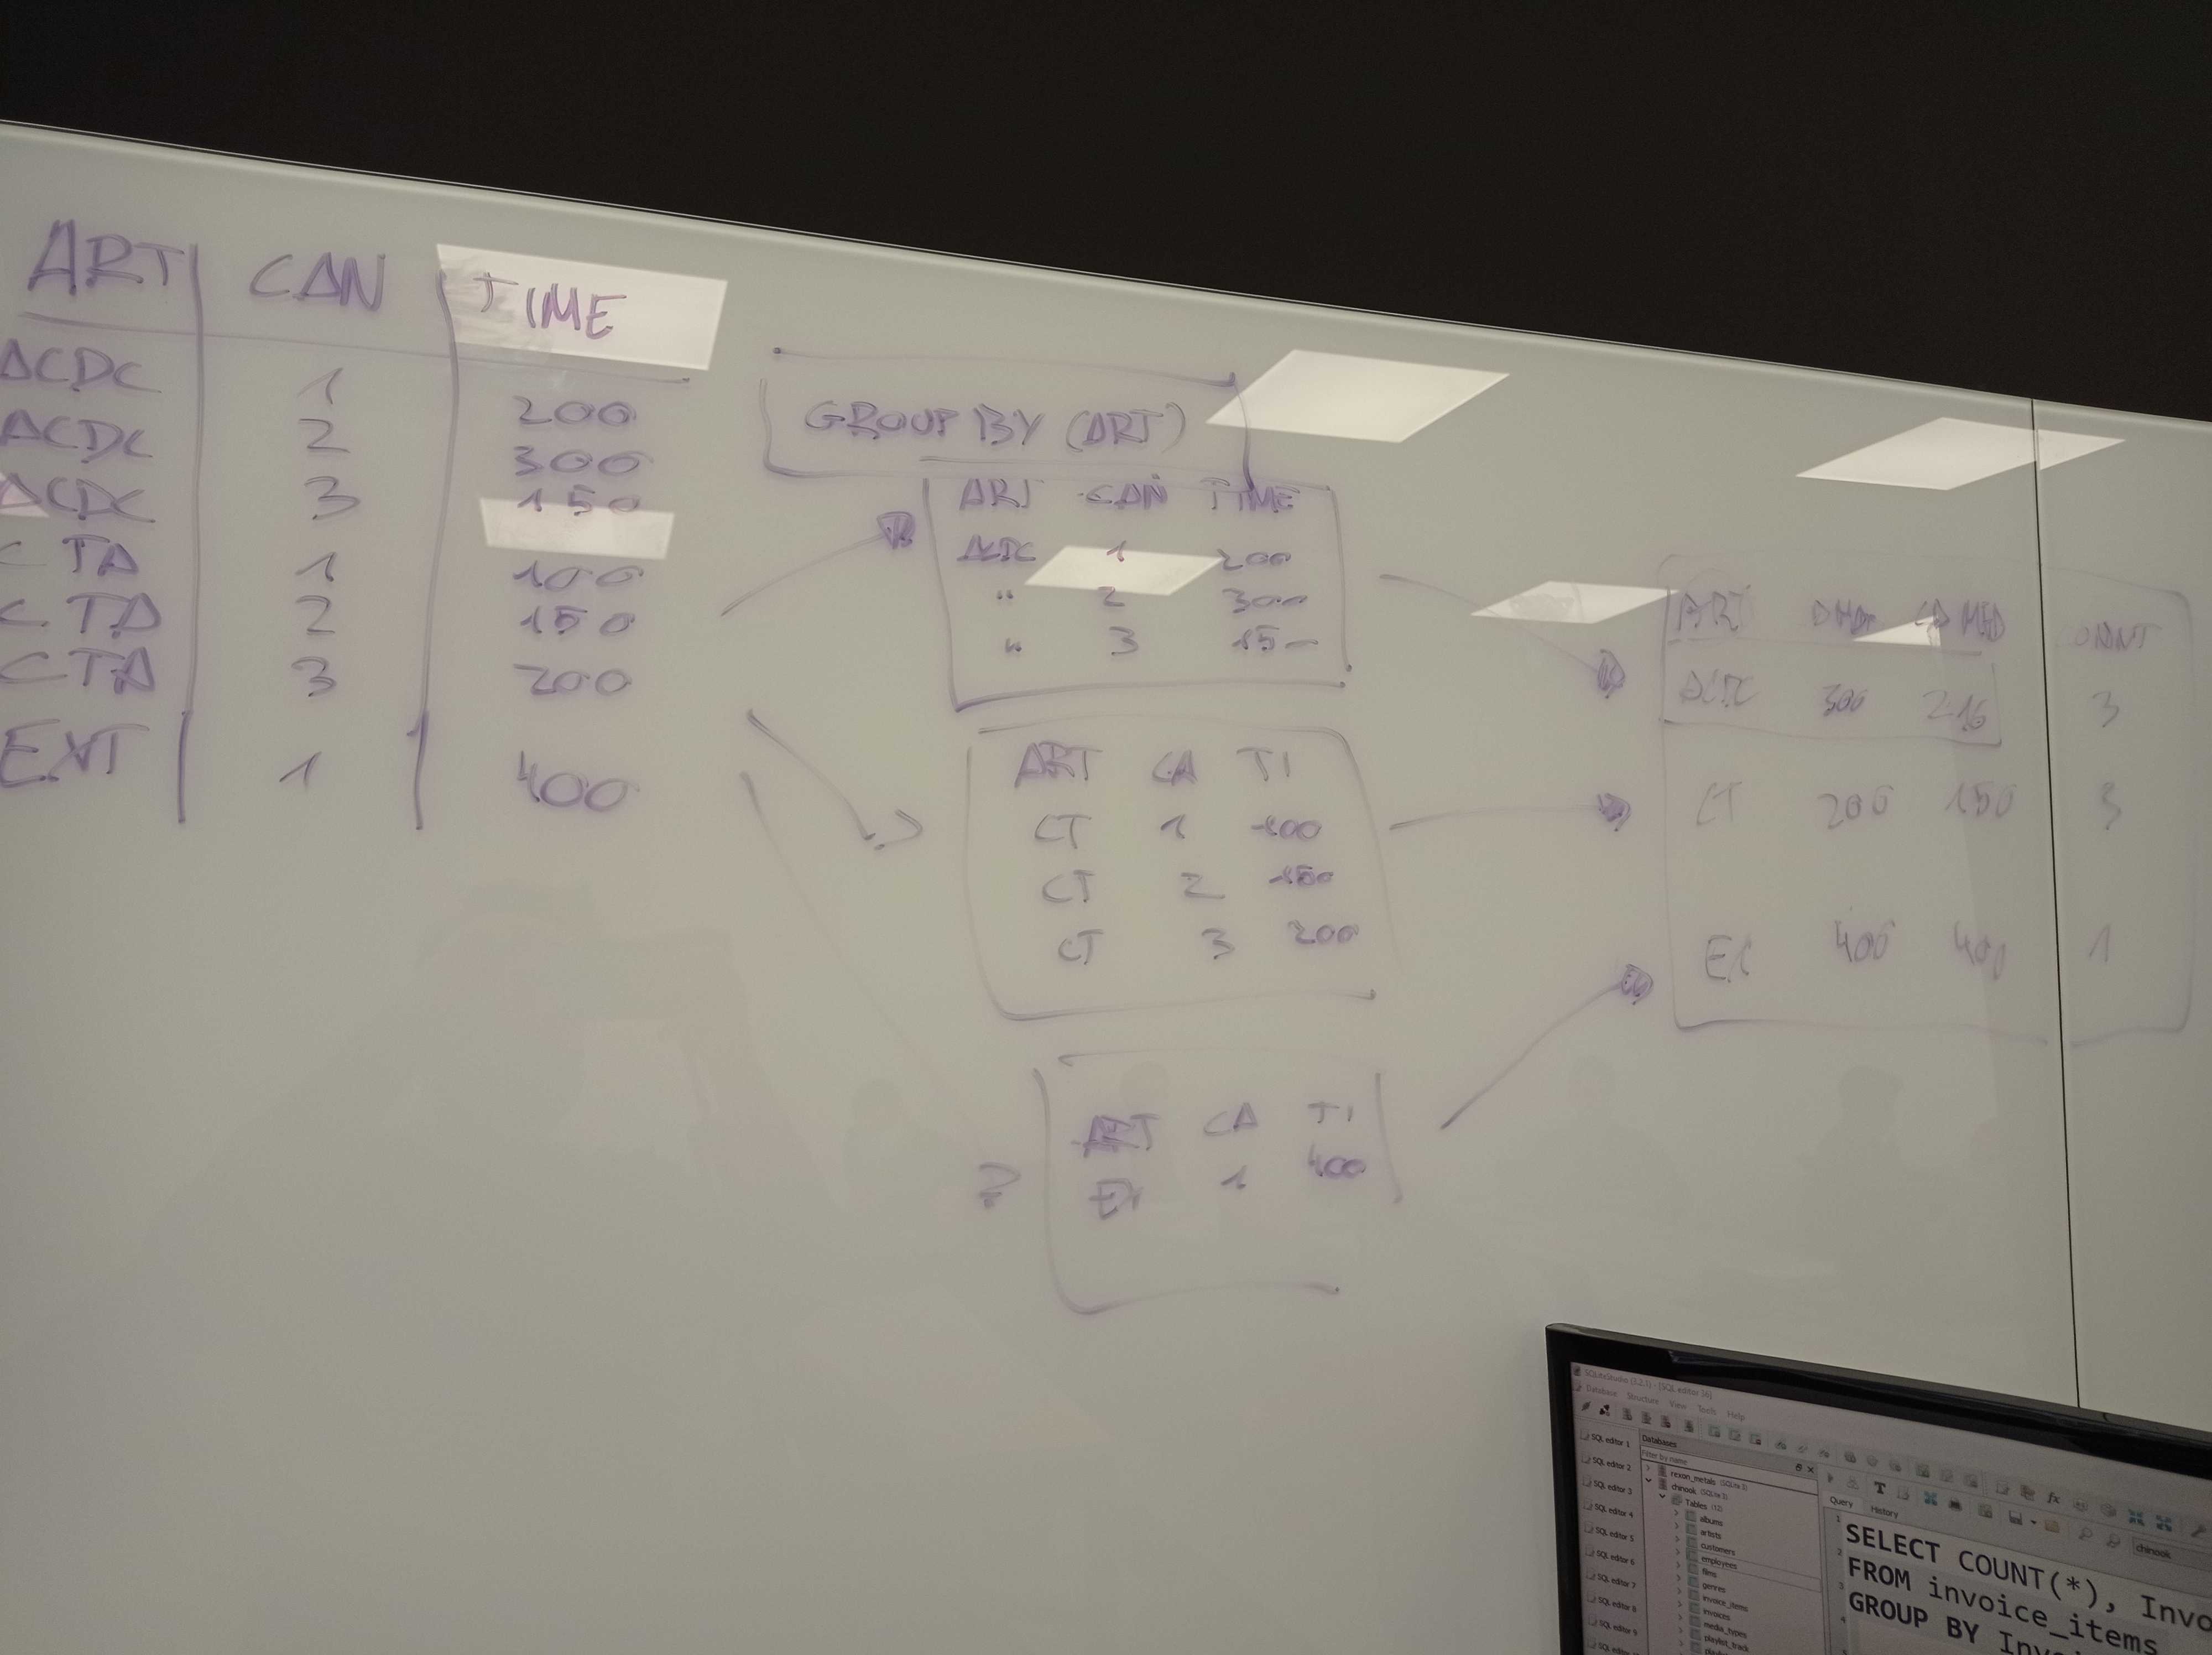 ART CAN TIME
ACDC 1 200
ACDC 2 300
ACDC 3 150
C TA 1 100
C. TA 2 150
C TA 3 200
EXT 1 400
GROUP BY (ART)
ART CAN TIME
ACDC 1 200
" 2 300
" 3 15-
ART CA TI
CT 1 100
CT 2 150
CT 3 200
ART CA TI
EX 1 400
ART COUNT
ACDC 300 216 3
CT 200 150 3
EX 400 400 1
SQLiteStudio (3.2.1) - [SQL editor 16]
Database Structure View Tools Help
SQL editor 1
SQL editor 2
SQL editor 3
SQL editor 4
SQL editor 5
SQL editor 6
SQL editor 7
SQL editor 8
SQL editor 9
Databases
Filter by name
rexon_metals (SQLite 3)
chinook (SQLite 3)
Tables (12)
albums
artists
customers
employees
films
genres
invoice_items
invoices
media_types
playlist_track
Query History
chinook
1 SELECT COUNT(*), Invo
2 FROM invoice_items
3 GROUP BY Invo
4